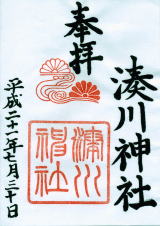 奉拝
湊川神社
湊川神社
平成二十一年七月三十日